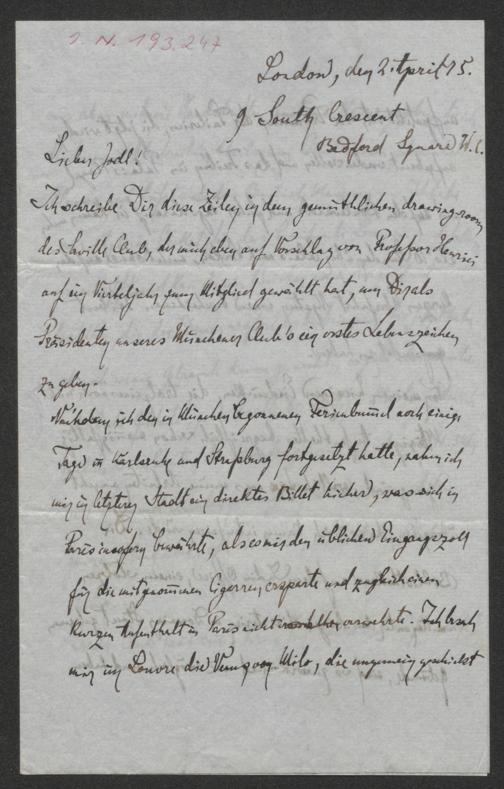 I. N. 193.247
London, den 2. April 75.
9 South Crescent
Bedford Square W.C.
Lieber Jodl!
Ich schreibe Dir diese Zeilen in dem gemüthlichen drawingroom
des Saville Club, der mich eben auf Vorschlag von Professor Henrici
auf ein Vierteljahr zum Mitglied gewählt hat, um Dir als
Präsidenten unseres Münchener Club's ein erstes Lebenszeichen
zu geben.
Nachdem ich den in München begonnenen Ferienbummel noch einige
Tage in Karlsruhe und Straßburg fortgesetzt hatte, nahm ich
mir in letzterer Stadt ein direktes Billet hieher, was sich in
Paris insofern bewährte, als es mir den üblichen Eingangszoll
für die mitgenommenen Cigarren ersparte und zugleich einen
kurzen Aufenthalt in Paris nicht verwehrte. Ich besah
mir im Louvre die Venus von Milo, die ungemein geschickt